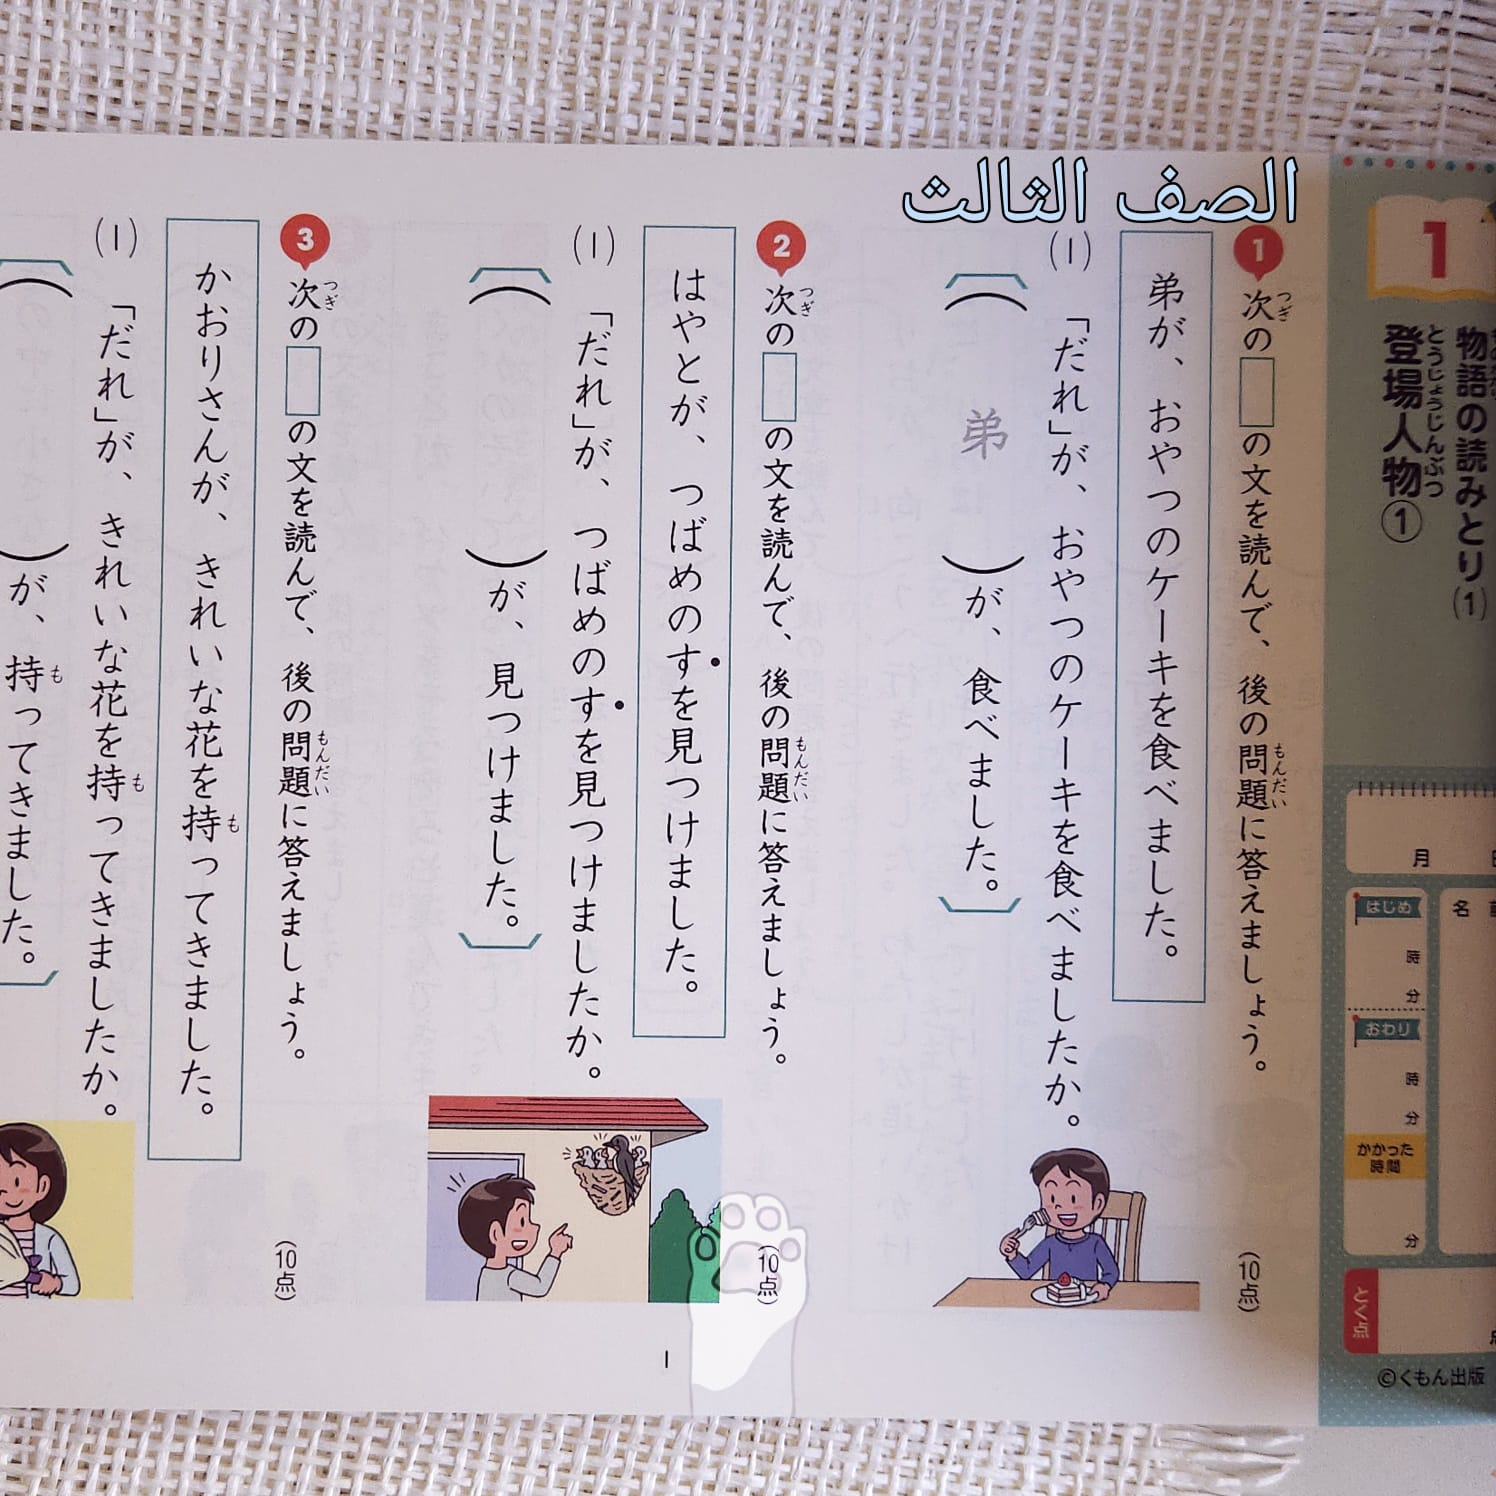 الصف الثالث
1
物語の読みとり(1)
登場人物①
とうじょうじんぶつ
月
名
はじめ
時
分
おわり
時
分
かかった
時間
分
とく点
©くもん出版
1 次の□の文を読んで、後の問題に答えましょう。
つぎ
もんだい
(10点)
弟が、おやつのケーキを食べました。
(1) 「だれ」が、おやつのケーキを食べましたか。
( 弟 )が、食べました。
2 次の□の文を読んで、後の問題に答えましょう。
つぎ
もんだい
(10点)
はやとが、つばめのすを見つけました。
(1) 「だれ」が、つばめのすを見つけましたか。
( )が、見つけました。
3 次の□の文を読んで、後の問題に答えましょう。
つぎ
もんだい
(10点)
かおりさんが、きれいな花を持ってきました。
も
(1) 「だれ」が、きれいな花を持ってきましたか。
も
( )が、持ってきました。
も
1